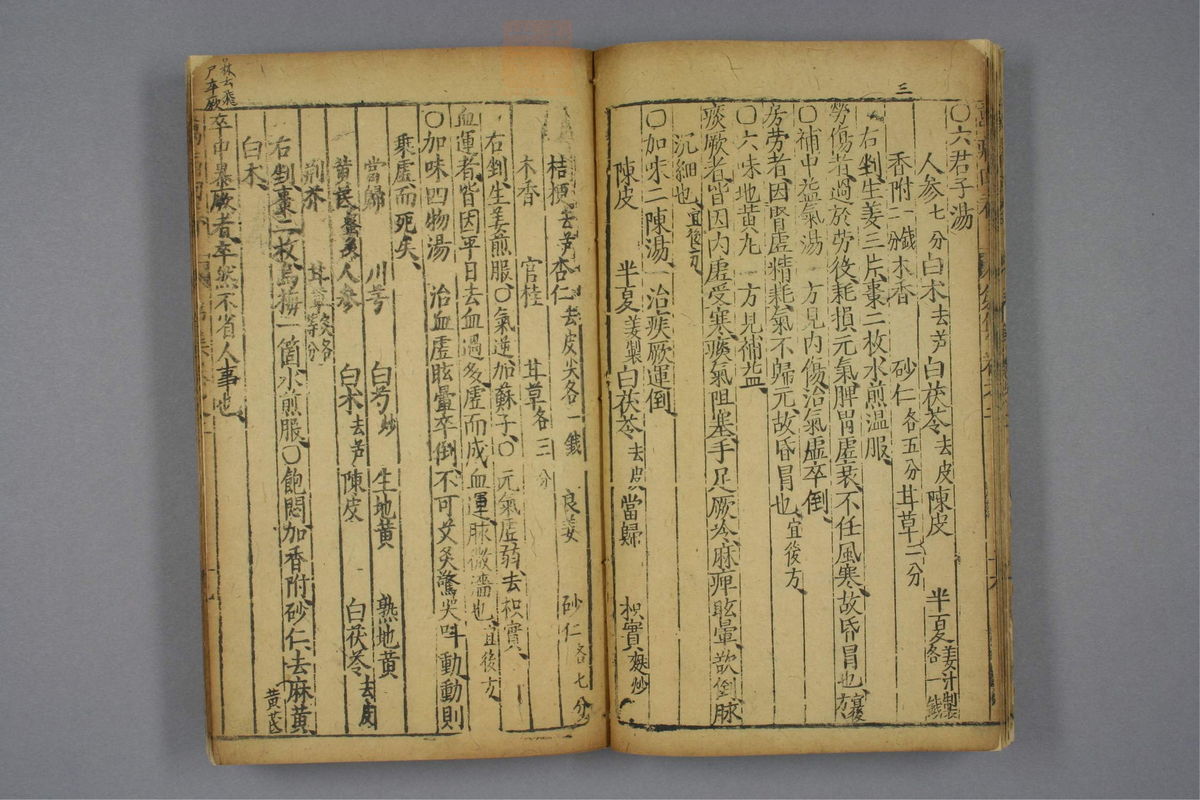 三
○六君子湯
人参七分白朮去芦白茯苓去皮陳皮半夏姜汁製各一錢
香附一錢二分木香砂仁各五分甘草二分
右剉生姜三片棗二枚水煎温服
勞傷者過於勞役耗損元氣脾胃虛衰不任風寒故昏冒也宜後方
○補中益氣湯方見内傷治氣虛卒倒
房勞者因腎虛精耗氣不歸元故昏冒也宜後方
○六味地黄丸方見補益
痰厥者皆因内虛受寒痰氣阻塞手足厥冷麻痺眩暈欲倒脉
沉細也宜後方
○加味二陳湯治痰厥運倒
陳皮半夏姜製白茯苓去皮當歸枳實麸炒
桔梗去芦杏仁去皮尖各一錢良姜砂仁各七分
木香官桂甘草各三分
右剉生姜煎服○氣逆加蘇子○元氣虛弱去枳實
血運者皆因平日去血過多虛而成血運脉微濇也宜後方
○加味四物湯治血虛眩暈卒倒不可艾灸驚哭呌動動則
乘虛而死矣
當歸川芎白芍炒生地黄熟地黄
黄芪蜜炙人參白朮去芦陳皮白茯苓去皮
荆芥甘草炙各等分
右剉棗一枚烏梅一箇水煎服○飽悶加香附砂仁去麻黄黄芪
白朮
卒中暴厥者卒然不省人事也
尸卒厥